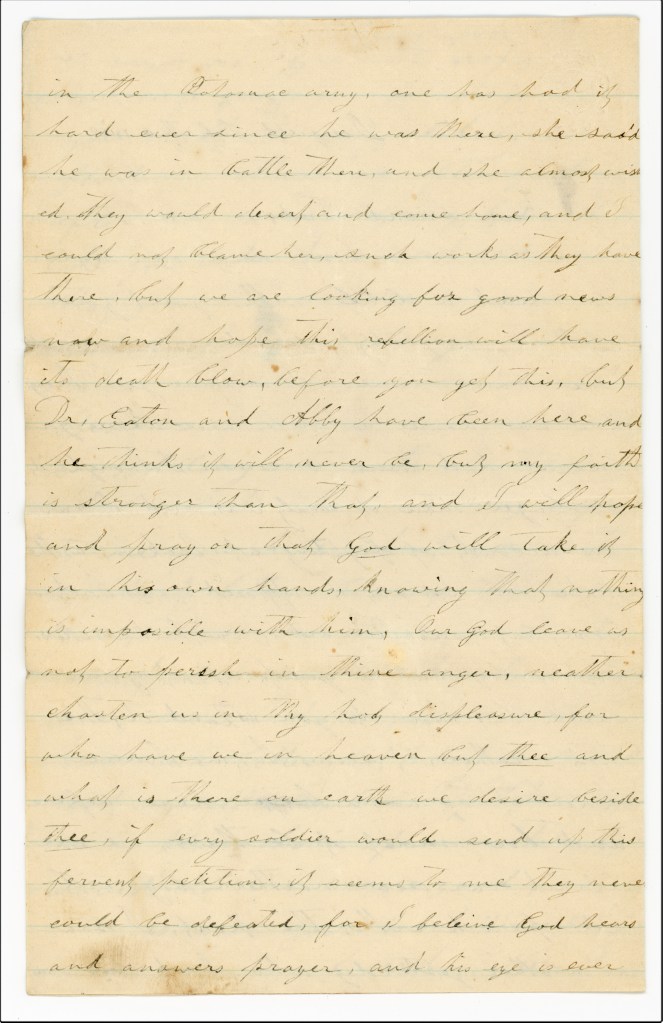 in the Potomac army, one has had it
hard ever since he was there, she said
he was in battle then, and she almost wish
ed they would desert and come home, and I
could not blame her, such works as they have
there, but we are looking for good news
now and hope this rebellion will have
its death blow, before you get this, but
Dr, Eaton and Abby have been here and
he thinks it will never be, but my faith
is stronger than that, and I will hope
and pray on that God will take it
in his own hands, knowing that nothing
is imposible with him, Our God leave us
not to perish in thine anger, neather
chasten us in thy hot displeasure, for
who have we in heaven but thee and
what is there on earth we desire beside
thee, if evry soldier would send up this
fervent petition, it seems to me they never
could be defeated, for I beleive God hears
and answers prayer, and his eye is ever